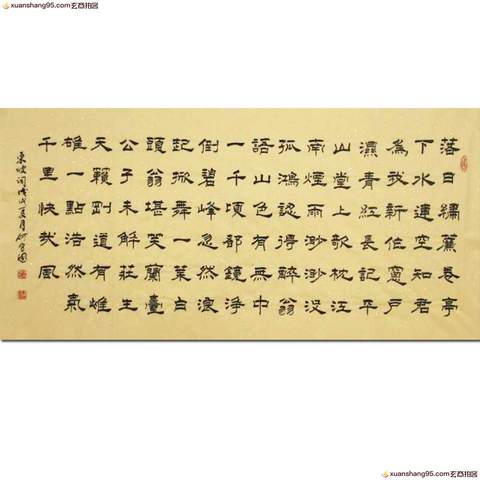 xuanshang95.com玄商拍图
落日繡簾卷亭
下水連空知君
為我新作窻戶
濕青紅長記平
山堂上欹枕江
南煙雨渺渺沒
孤鴻認得醉翁
語山色有無中
一千頃都鏡淨
倒碧峰忽然浪
起掀舞一葉白
頭翁堪笑蘭臺
公子未解莊生
天籟剛道有雌
雄一點浩然氣
千里快哉風
東坡詞戊戌夏月
xuanshang95.com玄商拍图